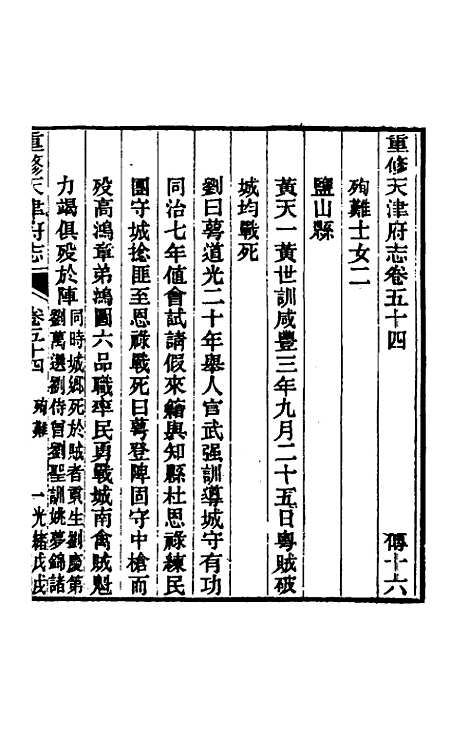 重修天津府志卷五十四　傳十六
殉難士女二
鹽山縣
黃天一黃世訓咸豐三年九月二十五日粵賊破
城均戰死
劉曰蕚道光二十年舉人官武强訓導城守有功
同治七年値會試請假來籍與知縣杜恩祿練民
團守城捻匪至恩祿戰死曰蕚登陴固守中槍而
歿高鴻章弟鴻圖六品職率民勇戰城南禽賊魁
力竭俱歿於陣同時城鄉死於賊者貢生劉慶第
劉萬選劉侍曾劉聖訓姚夢錦諸
重修天津府志　卷五十四　殉難　一　光緒戊戌